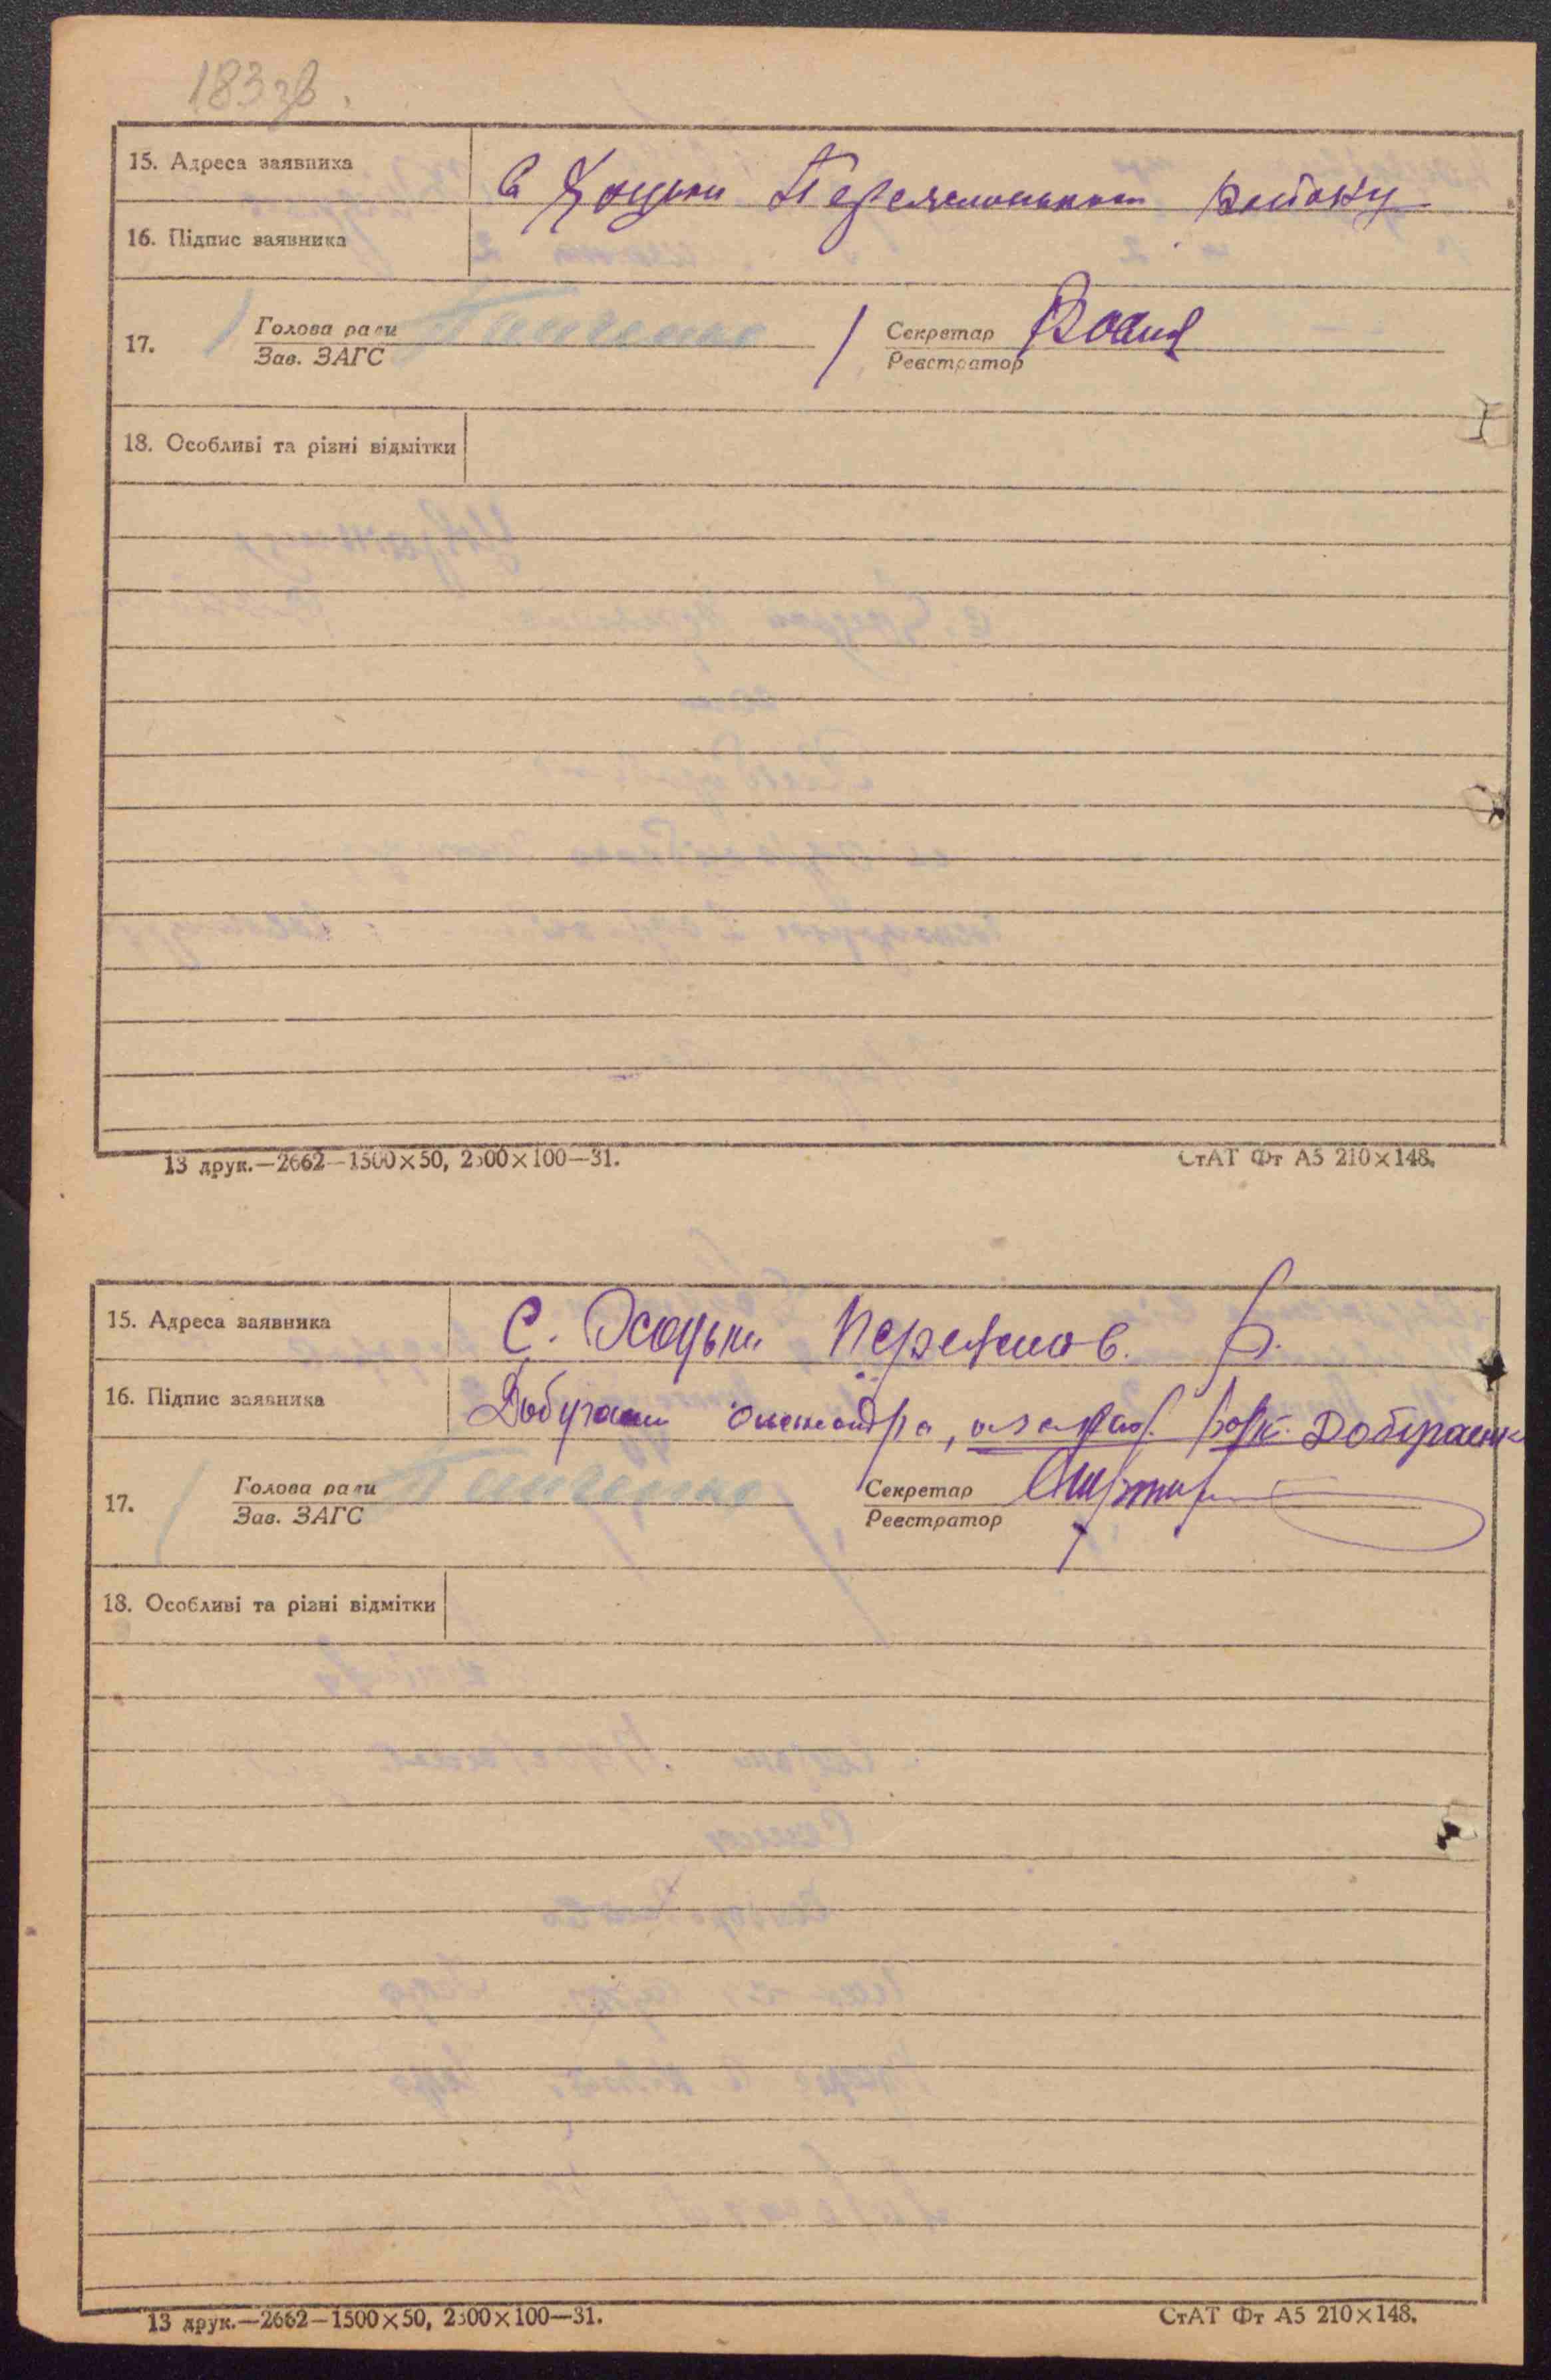 183зв.
15. Адреса заявника С Хоцьки Переяславського району
16. Підпис заявника
17. Голова ради Панченко Секретар
Зав. ЗАГС Реєстратор
18. Особливі та різні відмітки
13 друк.—2662—1500×50, 2300×100—31. СтАТ Фт А5 210×148.
15. Адреса заявника С. Хоцьки Переяслов. р.
16. Підпис заявника Олександра,
17. Голова ради Панченко Секретар
Зав. ЗАГС Реєстратор
18. Особливі та різні відмітки
13 друк.—2662—1500×50, 2300×100—31. СтАТ Фт А5 210×148.